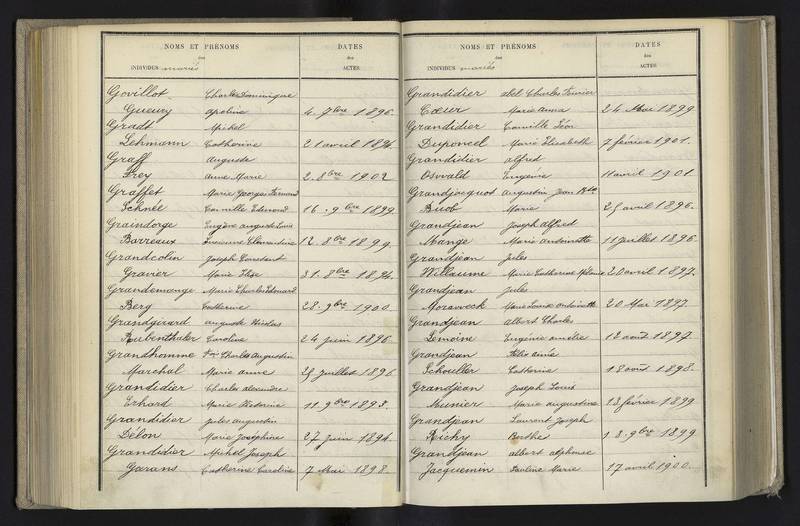 NOMS ET PRÉNOMS
DATES
des
des
INDIVIDUS mariés
ACTES
Govillot Charles Dominique
Gueury Apoline 4. 7bre 1896.
Gradt Michel
Lehmann Catherine 21 avril 1894.
Graff Auguste
Frey Anne Marie 2. 8bre 1902
Graffet Marie Georges Fernand
Schnée Camille Edmond 16. 9bre 1899.
Graindorge Eugène Auguste Louis
Barreaux Clémentine 12. 8bre 1899.
Grandcolin Joseph Constant
Gravier Marie Elise 31. 8bre 1894.
Grandemange Marie Charles Edouard
Berg Catherine 28. 9bre 1900.
Grandgirard Auguste Nicolas
Rubenthaler Caroline 24 juin 1896.
Grandhomme Charles Augustin
Marchal Marie Anne 25 juillet 1896.
Grandidier Charles Alexandre
Erhard Marie Victorine 11. 9bre 1893.
Grandidier Jules Augustin
Délon Marie Joséphine 27 juin 1894.
Grandidier Michel Joseph
Garans Catherine Caroline 7 Mai 1898.
NOMS ET PRÉNOMS
DATES
des
des
INDIVIDUS mariés
ACTES
Grandidier Abel Charles
Cœur Marie Anna 24 Mai 1899
Grandidier Camille Léon
Duponcel Marie Elisabeth 7 février 1901.
Grandidier Alfred
Osvald Eugénie 11 avril 1901.
Grandjacquot Augustin Jean Bte
Buob Marie 25 avril 1896.
Grandjean Joseph Alfred
Mange Marie Antoinette 11 juillet 1896.
Grandjean Jules
Willaume Marie Catherine Mélanie 20 avril 1897.
Grandjean Jules
Moravech Marie Louise Antoinette 20 Mai 1897.
Grandjean Albert Charles
Lemoine Eugénie Amélie 12 août 1897.
Grandjean Félix Aimé
Schouller Catherine 18 août 1898.
Grandjean Joseph Louis
Munier Marie Augustine 18 février 1899
Grandjean Laurent Joseph
Richy Berthe 18. 9bre 1899
Grandjean Albert Alphonse
Jacquemin Pauline Marie 17 avril 1900.